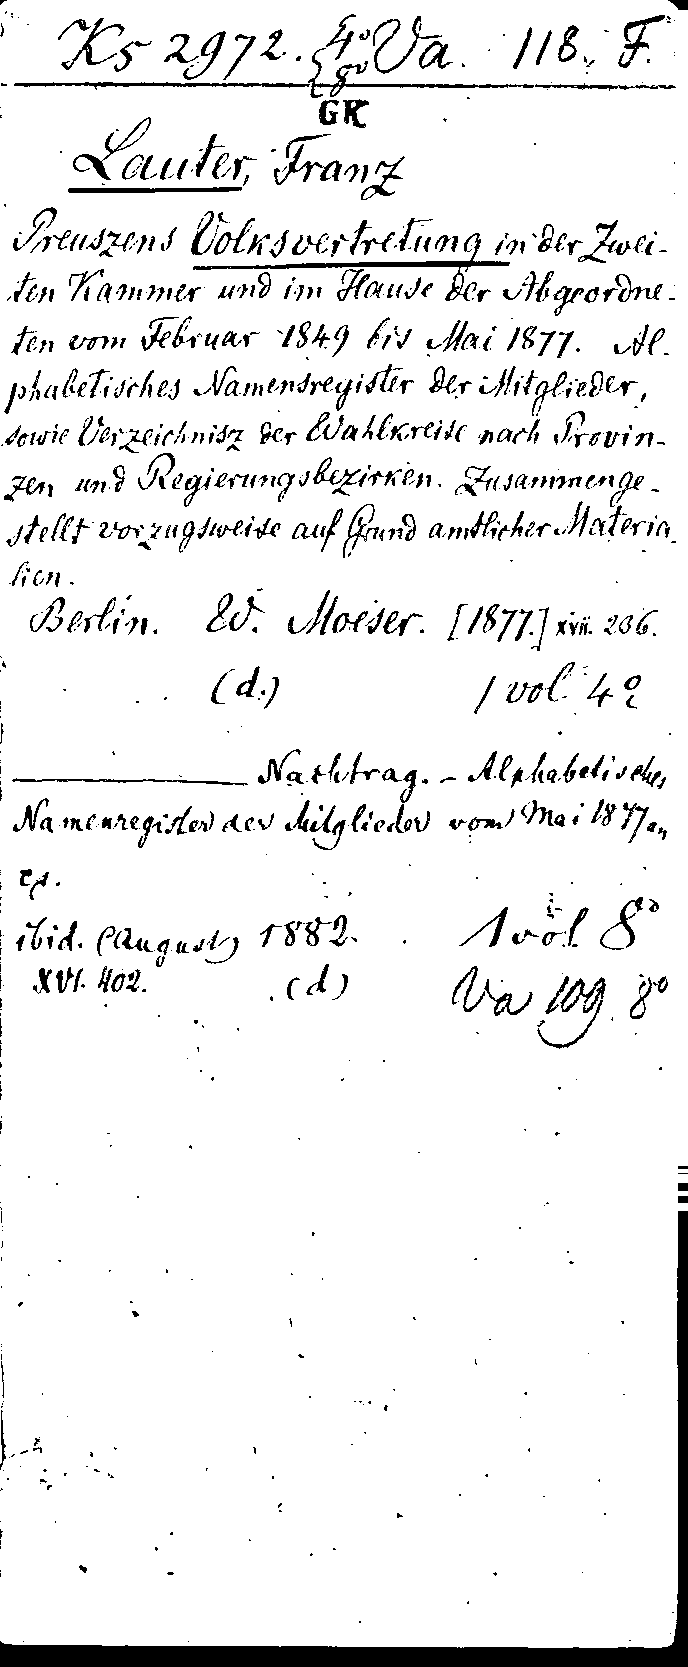 Ks 2972. {4° 8° Va. 118. F.
GK
Lauter, Franz
Preuszens Volksvertretung in der Zwei-
ten Kammer und im Hause der Abgeordne-
ten vom Februar 1849 bis Mai 1877. Al-
phabetisches Namensregister der Mitglieder,
sowie Verzeichnisz der Wahlkreise nach Provin-
zen und Regierungsbezirken. Zusammenge-
stellt vorzugsweise auf Grund amtlicher Materia-
lien.
Berlin. W. Moeser. [1877.] XVII. 236.
(d.) 1 vol 4°
Nachtrag. - Alphabetisches
Namenregister der Mitglieder vom Mai 1877 an
ibid. (August) 1882. 1 vol. 8°
XVI. 402. (d) Va 109 8°